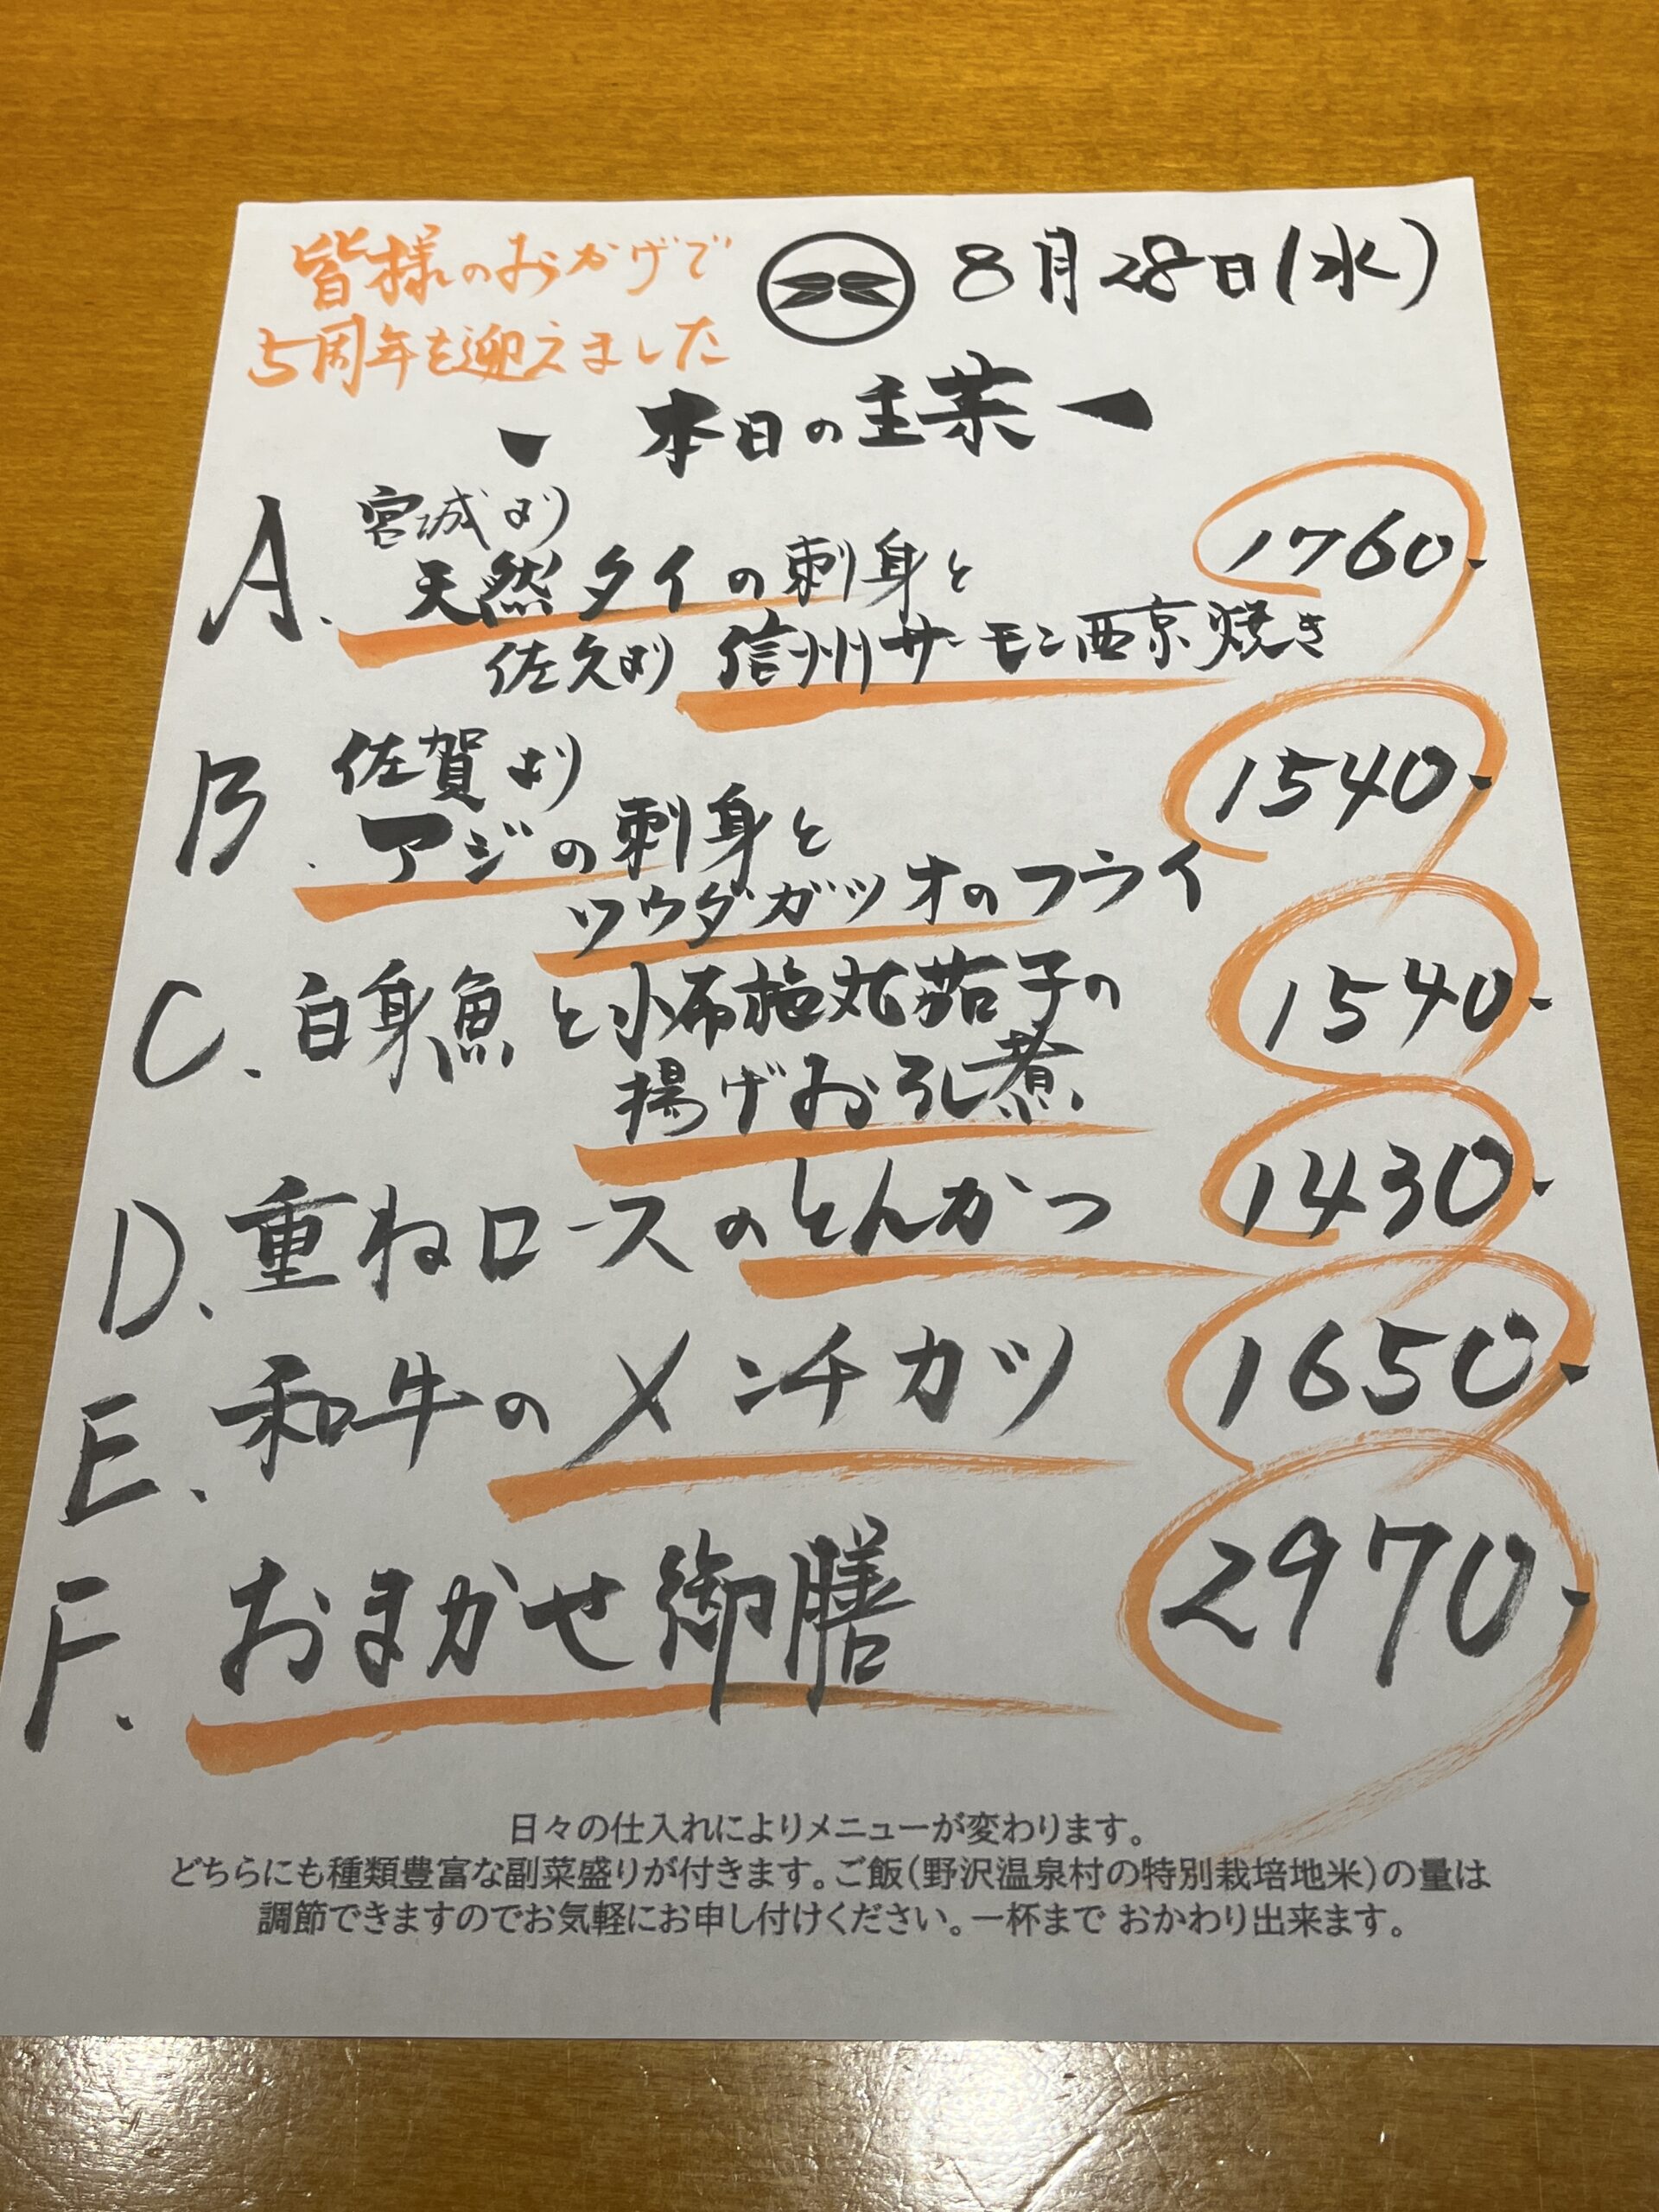 皆様のおかげで
5周年を迎えました
8月28日(水)
本日の主菜
A. 宮城より
天然タイの刺身と
佐久より 信州サーモン西京焼き
1760-
B. 佐賀より
アジの刺身と
ソウダガツオのフライ
1540-
C. 白身魚と小布施丸茄子の
揚げおろし煮
1540-
D. 重ねロースのとんかつ
1430-
E. 和牛のメンチカツ
1650-
F. おまかせ御膳
2970-
日々の仕入れによりメニューが変わります。
どちらにも種類豊富な副菜盛りが付きます。ご飯(野沢温泉村の特別栽培地米)の量は
調節できますのでお気軽にお申し付けください。一杯まで おかわり出来ます。